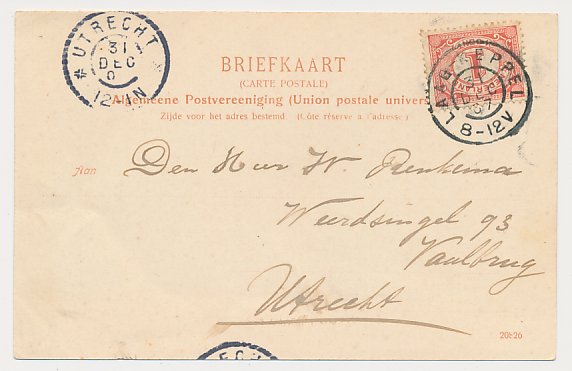 UTRECHT
31
DEC
12
BRIEFKAART
(CARTE POSTALE)
Algemeene Postvereeniging (Union postale univers
Zijde voor het adres bestemd (Côté réservé à l'adresse)
LAAG KEPPEL
8-12V
Aan
Den Heer W. Renkema
Weerdsingel 93
Vaalbrug
Utrecht
20826